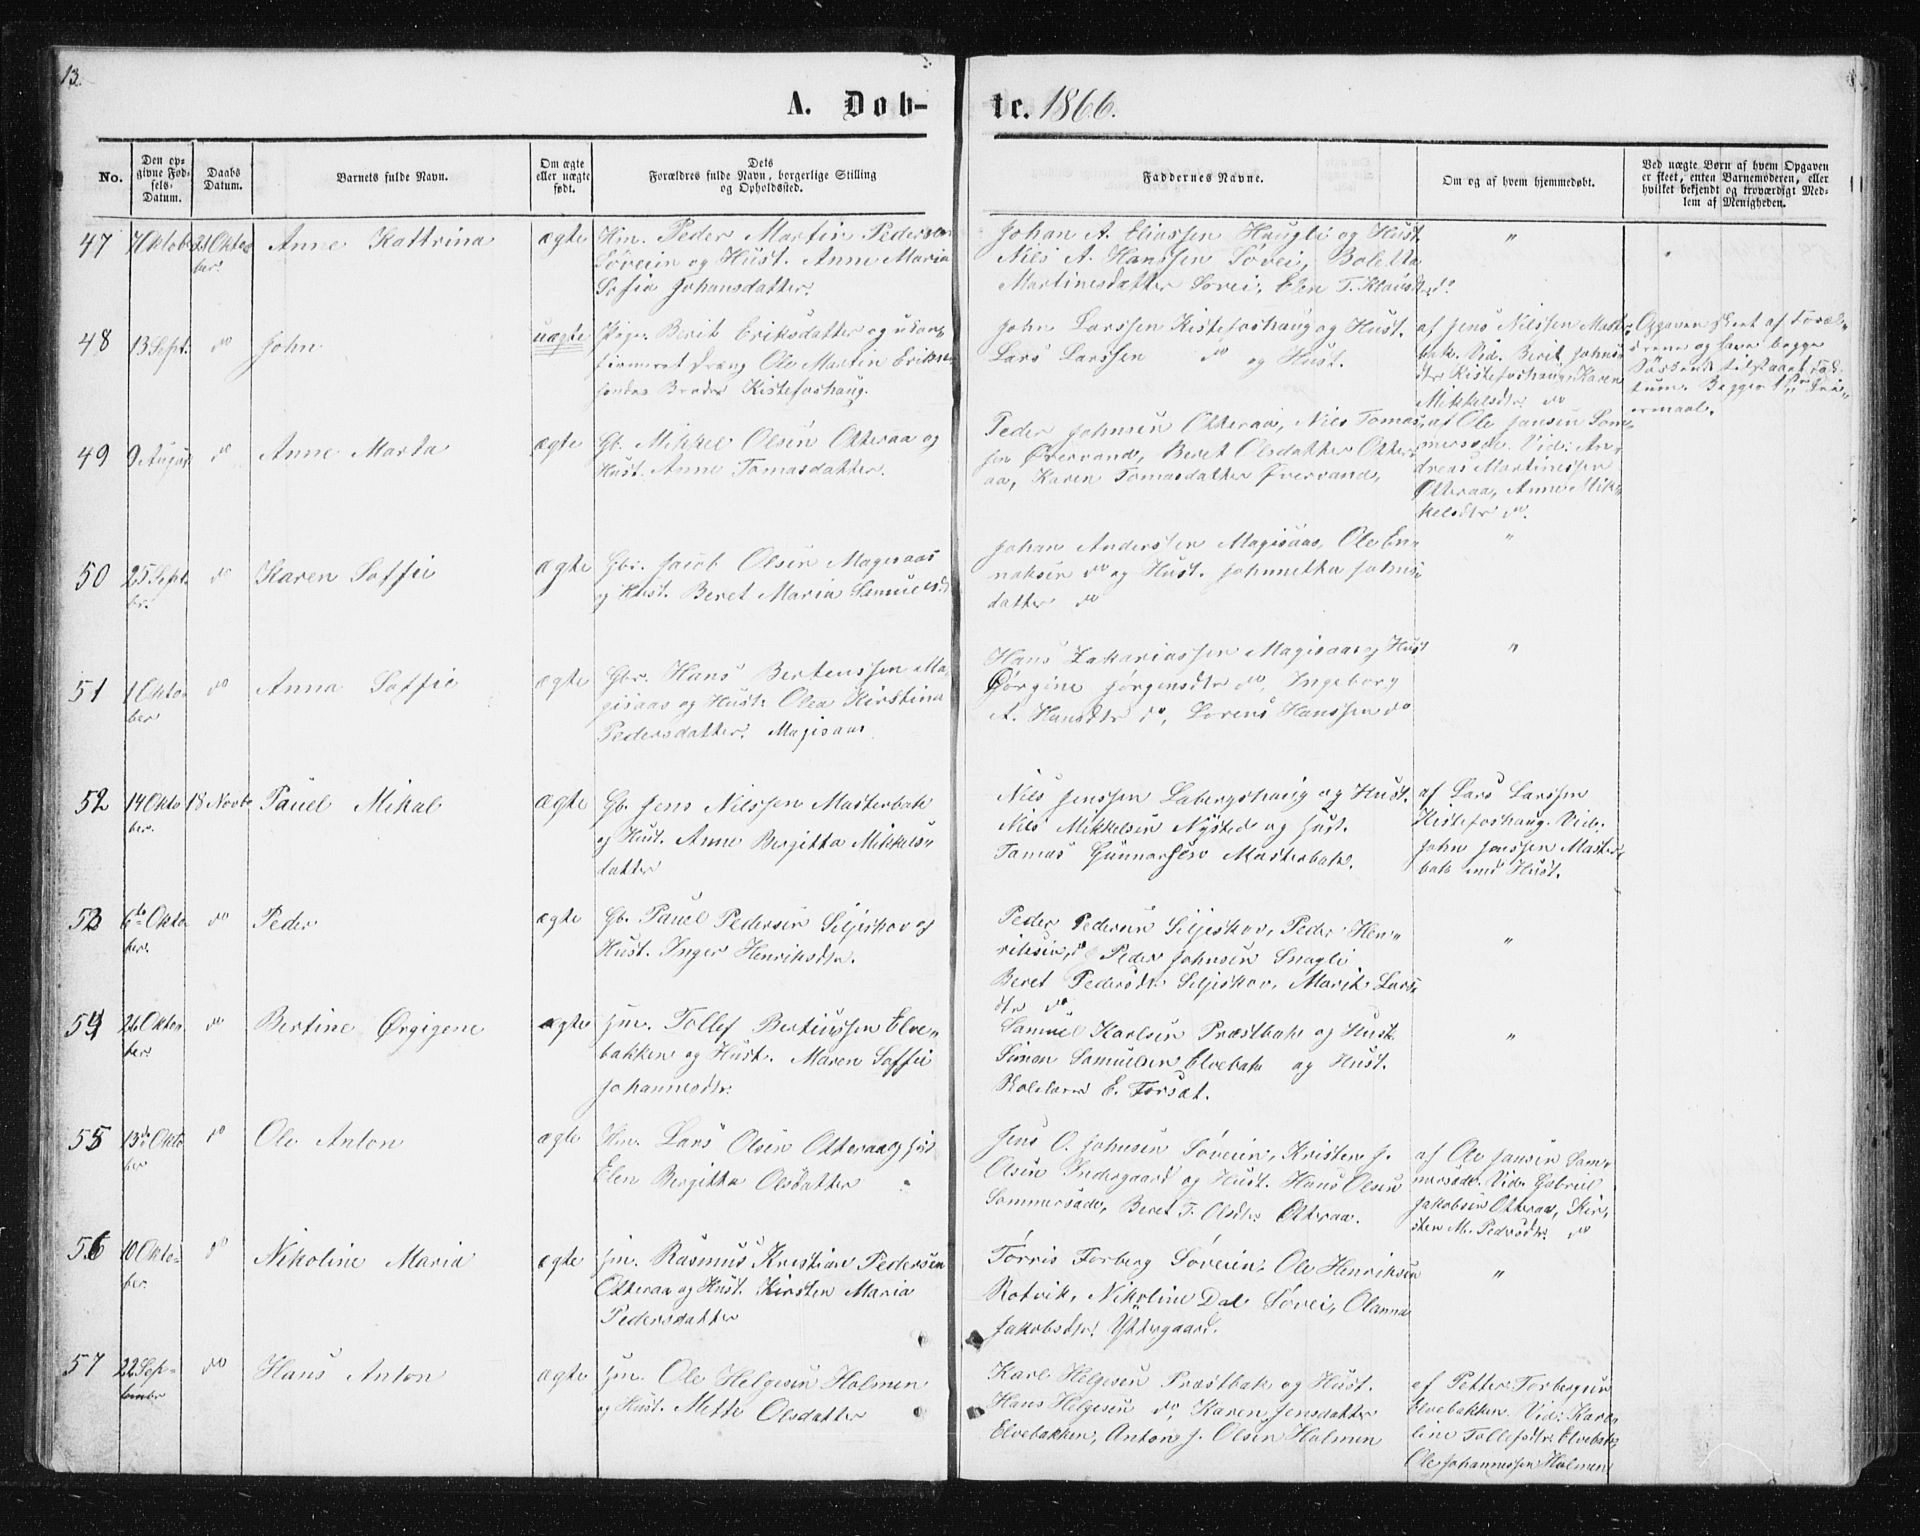 13.
A. Døb-
te. 1866.
No.
Den op-
givne Fød-
sels-
Datum.
Daabs
Datum.
Barnets fulde Navn.
Om ægte
eller uægte
født.
Dets
Forældres fulde Navn, borgerlige Stilling
og Opholdssted.
Faddernes Navne.
Om og af hvem hjemmedøbt.
Ved uægte Børn af hvem Opgaven
er skeet, enten Barnemoderen, eller
hvilket bekjendt og troværdigt Med-
lem af Menigheden.
47
7 Oktob
21 Okto
ber.
Anne Kattrina
ægte
Hm. Peder Martin Pedersen
Søveien og Hust. Anne Maria
Sofie Johansdatter.
Johan A. Eliassen Haugli og Hust.
Nils A. Hanssen Søvei, Boletta
Martinesdatter Søvei, Elen T.
"
"
48
13 Sept.
do
John
uægte
Pige. Berit Eriksdatter og ukon-
firmeret Dreng Ole Martin Eriksen
hendes Broder Kistefoshaug.
John Larssen Kistefoshaug og Hust.
Lars Larssen do og Hust.
af Jens Nilssen Master-
bak. Vid. Berit Johns-
dtr Kistefoshaug, Karen
Mikkelsdtr. do
Opgaven skeet af Foræl-
drene og have begge
Søskende tilstaaet Fac-
tum. Begges 1ste Lei-
ermaal.
49
9 August
do
Anne Marta
ægte
Gb. Mikkel Olsen Otteraa og
Hust. Anne Tomasdatter.
Peder Johnsen Otteraa, Nils Tomas-
sen Øvervand, Beret Olsdatter Otter-
aa, Karen Tomasdatter Øvervand,
af Ole Jansen Som-
mersæde. Vid: An-
dreas Martinessen
Otteraa, Anne Mik-
kelsdtr do.
50
25 Sept
br.
do
Karen Soffie
ægte
Gbr. Jacob Olsen Magesaas
og Hust. Beret Maria Samuelsd.
Johan Anderssen Magisaas, Ole En-
oksen do og Hust. Johnetta Johns-
datter do
"
51
1 Okto-
ber
do
Anna Soffie
ægte
Gbr. Hans Berteussen Ma-
gisaas og Hust. Olea Kirstina
Pedersdatter. Magisaas
Hans Zakariassen Magisaas og Hust
Jørgine Jørgensdtr do, Ingeborg
A. Hansdtr do, Lorens Hanssen do
"
52
14 Okto
ber.
18 Novbr
Pauel Mikal
ægte
Gb. Jens Nilssen Masterbak
og Hust. Anne Bergitta Mikkels-
datter
Nils Jenssen Labergshaug og Hust.
Nils Mikkelsen Nysted og Hust.
Tomas Gunnarsen Masterbak.
af Lars Larssen
Kistefoshaug. Vid:
John Jenssen Master-
bak med Hust.
53
6te Okto
ber.
do
Peder
ægte
Gb. Pauel Pedersen Siljeskov og
Hust. Inger Henriksdtr.
Peder Pedersen Siljeskov, Peder Hen-
riksen, do Peder Johnsen Snogli
Beret Pedersdtr Siljeskov, Marit Lars-
dtr do
"
54
26 Okto
ber.
do
Bertine Ørgigene
ægte
Hm. Tollef Bertiussen Elve-
bakken og Hust. Maren Soffie
Johannesdtr.
Samuel Karlsen Præstbak og Hust.
Simon Samuelsen Elvebak og Hust.
Skolelærer E. Forsæt.
"
55
13de Okto
ber
do
Ole Anton
ægte
Hm. Lars Olsen Otteraa og Hust
Elen Bergitta Olsdatter
Jens O. Johnsen Søveien, Kristen J.
Olsen Indergaard og Hust. Hans Olsen
Sommersæde, Beret T. Olsdtr. Otteraa.
af Ole Jansen Som-
mersæde. Vid. Gabriel
Jakobsen Otteraa, Kir-
sten M. Pedersdtr. do
56
10 Okto-
ber.
do
Nikoline Maria
ægte
Hm. Rasmus Kristian Pedersen
Otteraa og Hust. Kirsten Maria
Pedersdatter
Tørris Forberg Søveien, Ole Henriksen
Rotvik, Nikoline Dal Søvei, Olanna
Jakobsdtr. Yttergaard.
"
57
22 Sep-
tember
do
Hans Anton
ægte
Hm. Ole Helgesen Holmen
og Hust. Mette Olsdatter
Karl Helgesen Præstbak og Hust.
Hans Helgesen do, Karen Jensdatter
Elvebakken, Anton J. Olsen Holmen
af Petter Torbergsen
Elvebakken. Vid: Karo-
line Tollefsdtr. Elvebak,
Ole Johannessen Holmen